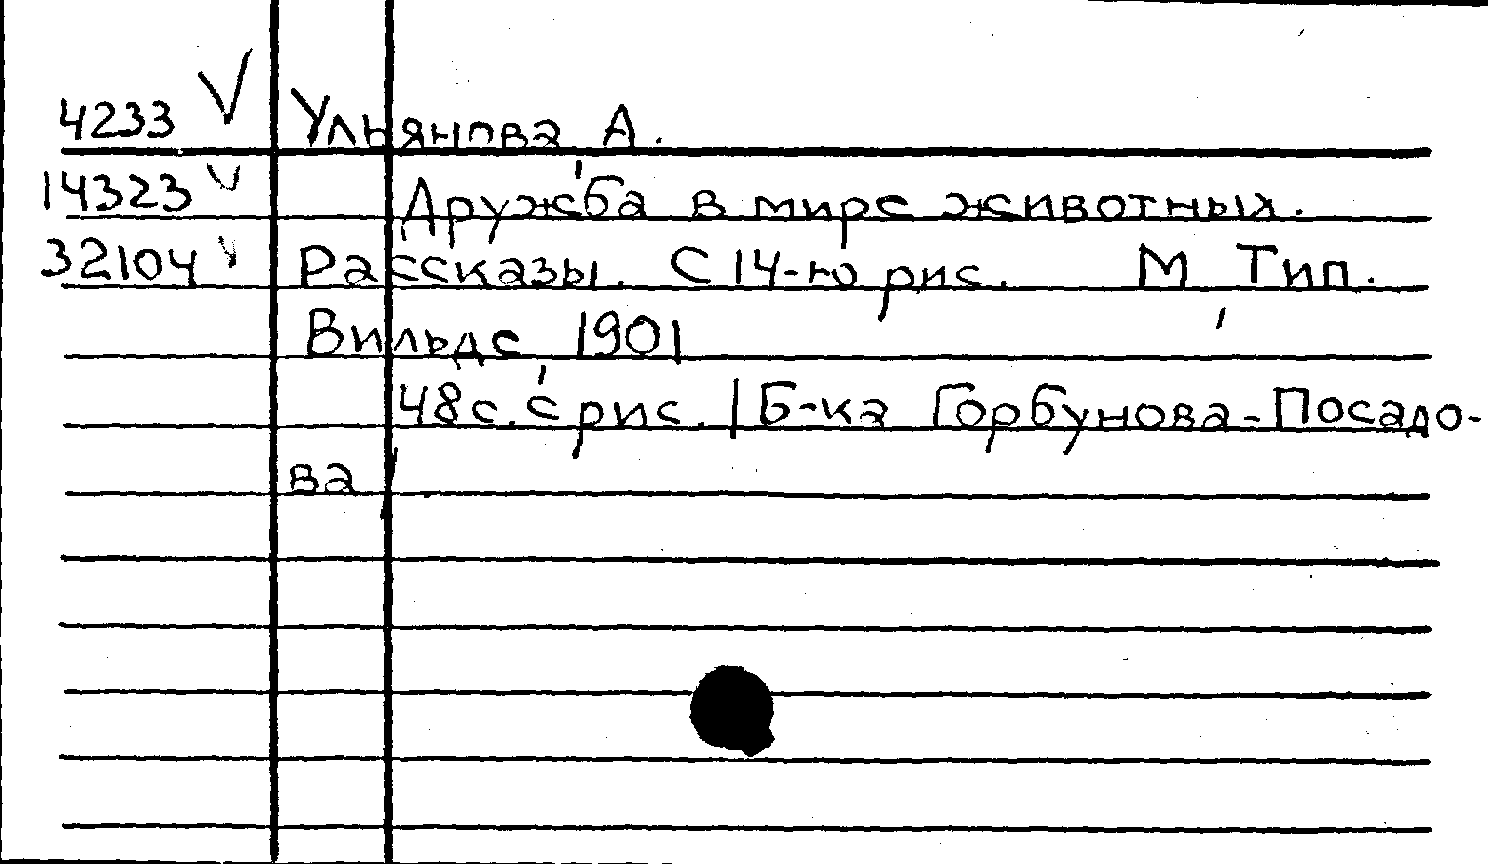 4233 V Ульянова А.
14323 V Дружба в мире животных.
32104 V Рассказы. С 14-ю рис. М, Тип.
Вильде, 1901
48с. с рис. /Б-ка Горбунова-Посадо-
ва/